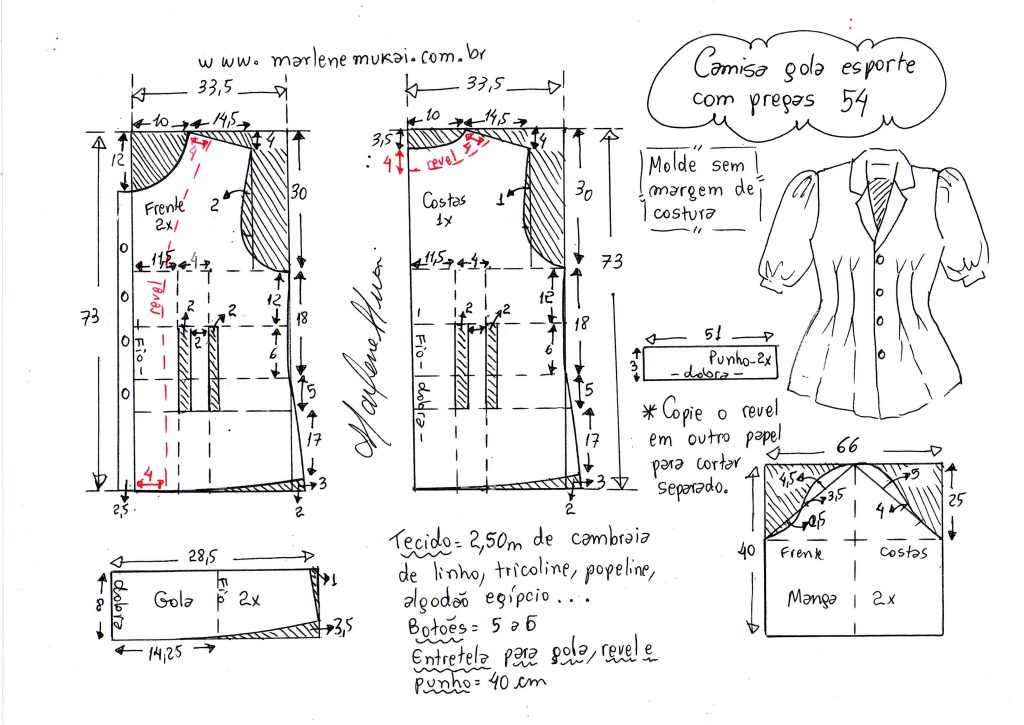 www.marlenemukai.com.br
Camisa gola esporte
com pregas 54
33,5
10
14,5
4
12
4
Frente
2x
2
30
11,5
4
Revel
12
18
2
2
2
6
Fio
5
17
4
3
2,5
2
73
33,5
10
14,5
3,5
4
4
revel
5
Costas
1x
1
30
11,5
4
12
18
2
2
6
Fio
dobra
5
17
3
2
73
Marlene Mukai
Molde sem
margem de
costura
51
3
Punho-2x
- dobra -
* Copie o revel
em outro papel
para cortar
separado.
66
4,5
3,5
0,5
5
4
25
40
Frente
Costas
Manga 2x
28,5
8
dobra
Gola
Fio
2x
1
3,5
14,25
Tecido= 2,50m de cambraia
de linho, tricoline, popeline,
algodão egípcio...
Botões= 5 a 6
Entretela para gola, revel e
punho= 40 cm